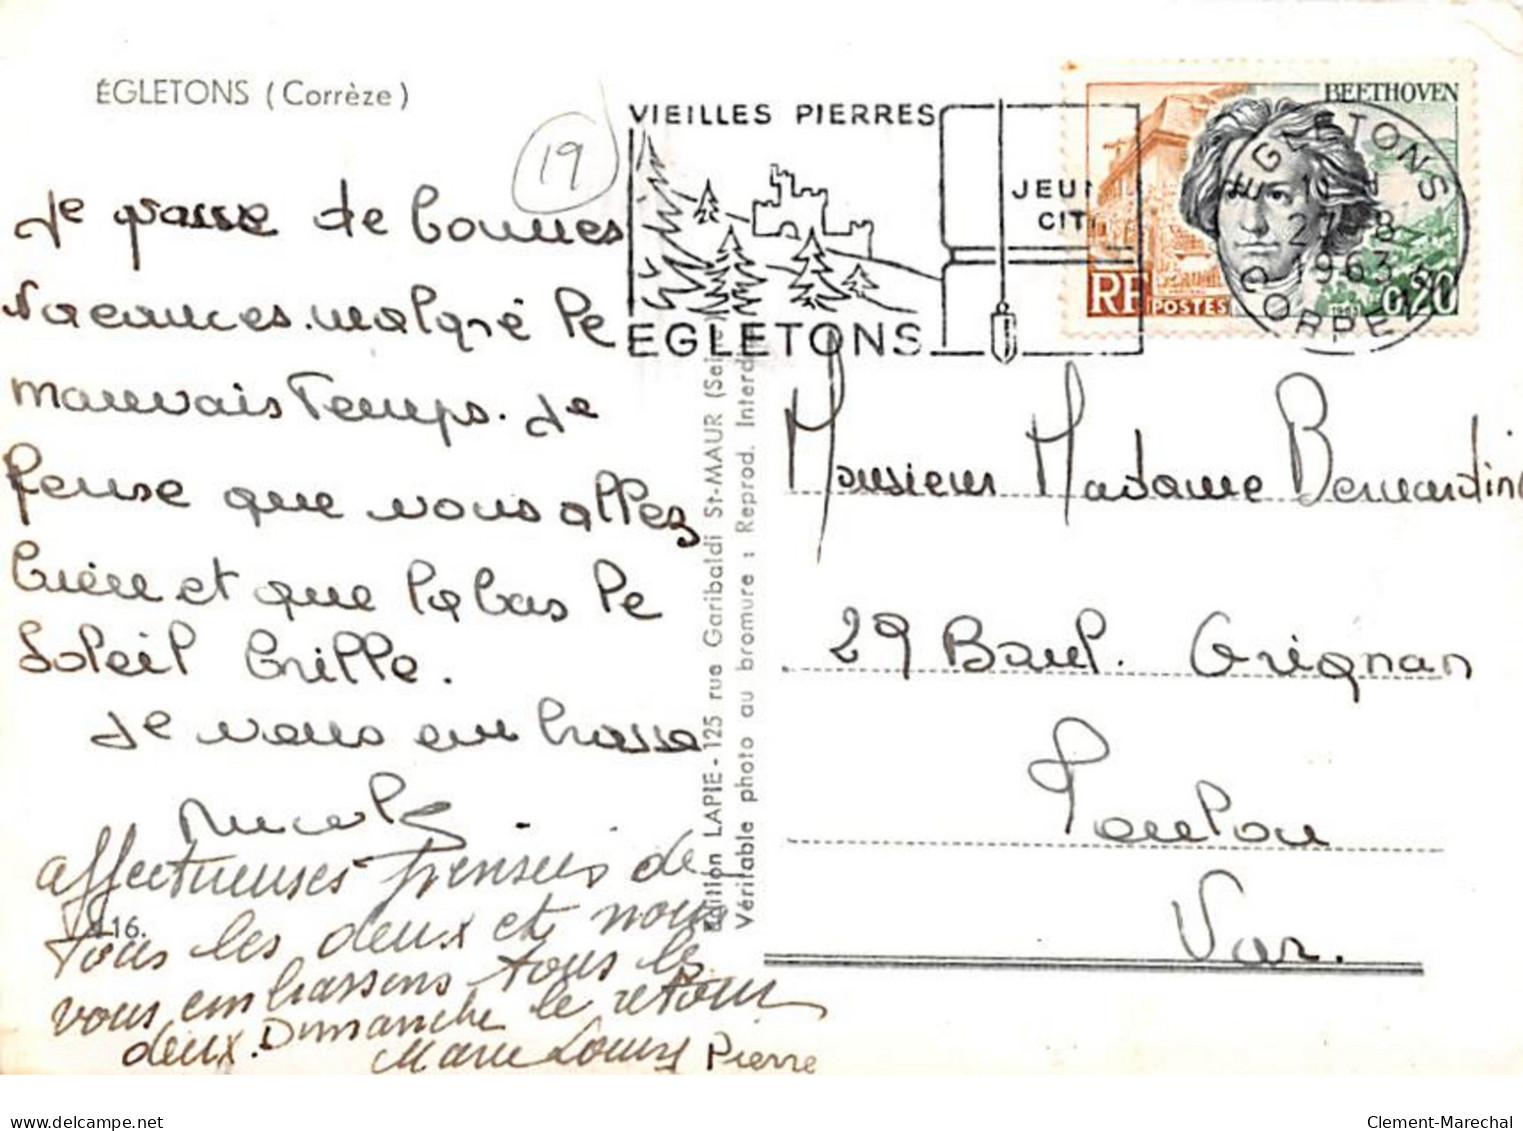 ÉGLETONS (Corrèze)
19
VIEILLES PIERRES
JEUN
CIT
EGLETONS
BEETHOVEN
RF
POSTES
0,20
EGLETONS
27-8
1963
CORREZE
Je passe de bonnes
vacances. malgré le
mauvais Temps. Je
pense que vous allez
bien et que la bas le
Soleil brille.
Je vous embrasse
Nicole.
affectueuses pensées de
tous les deux et nous
vous embrassons tous les
deux. Dimanche le retour
Marie Louise Pierre
116.
Edition LAPIE - 125 rue Garibaldi St-MAUR (Seine
Véritable photo au bromure : Reprod. Interdi
Monsieur Madame Bernardini
29 Boul. Grignan
Toulon
Var.
Clement-Marechal